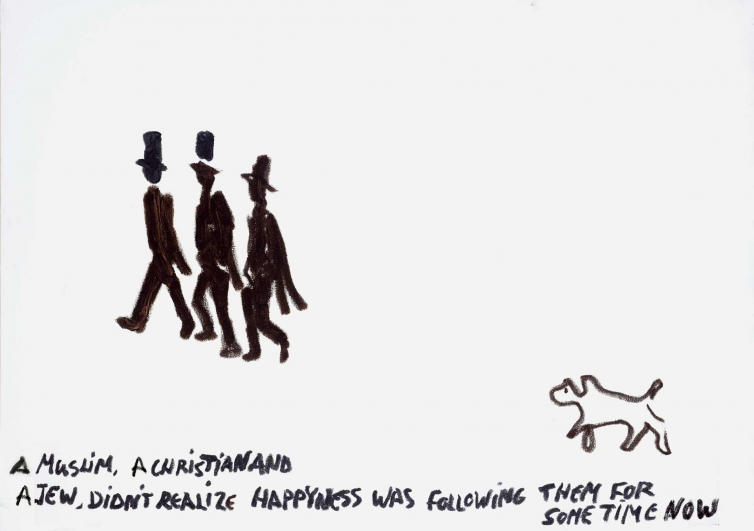 A MUSLIM, A CHRISTIAN AND
A JEW, DIDN'T REALIZE HAPPYNESS WAS FOLLOWING THEM FOR
SOME TIME NOW